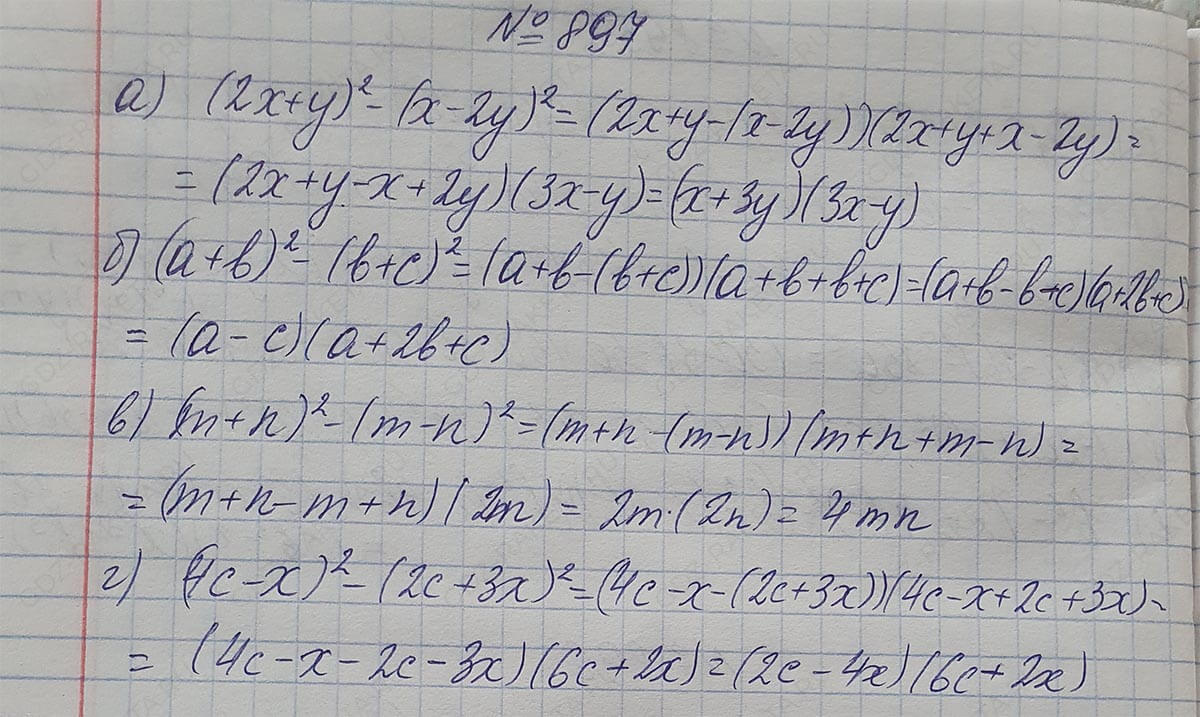 № 897
а) (2x+y)² - (x-2y)² = (2x+y-(x-2y))(2x+y+x-2y) =
= (2x+y-x+2y)(3x-y) = (x+3y)(3x-y)
б) (a+b)² - (b+c)² = (a+b-(b+c))(a+b+b+c) = (a+b-b+c)(a+2b+c)
= (a-c)(a+2b+c)
в) (m+n)² - (m-n)² = (m+n-(m-n))(m+n+m-n) =
= (m+n-m+n)(2m) = 2m·(2n) = 4mn
г) (4c-x)² - (2c+3x)² = (4c-x-(2c+3x))(4c-x+2c+3x) =
= (4c-x-2c-3x)(6c+2x) = (2c-4x)(6c+2x)